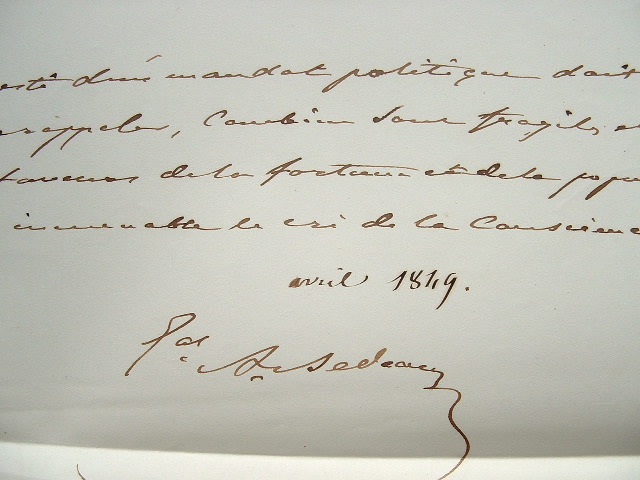 esté d'un mandat politique doit
rappeler, Combien sont fragiles
faveurs de la fortune et de la popu
immuable le cri de la Conscience
avril 1849.